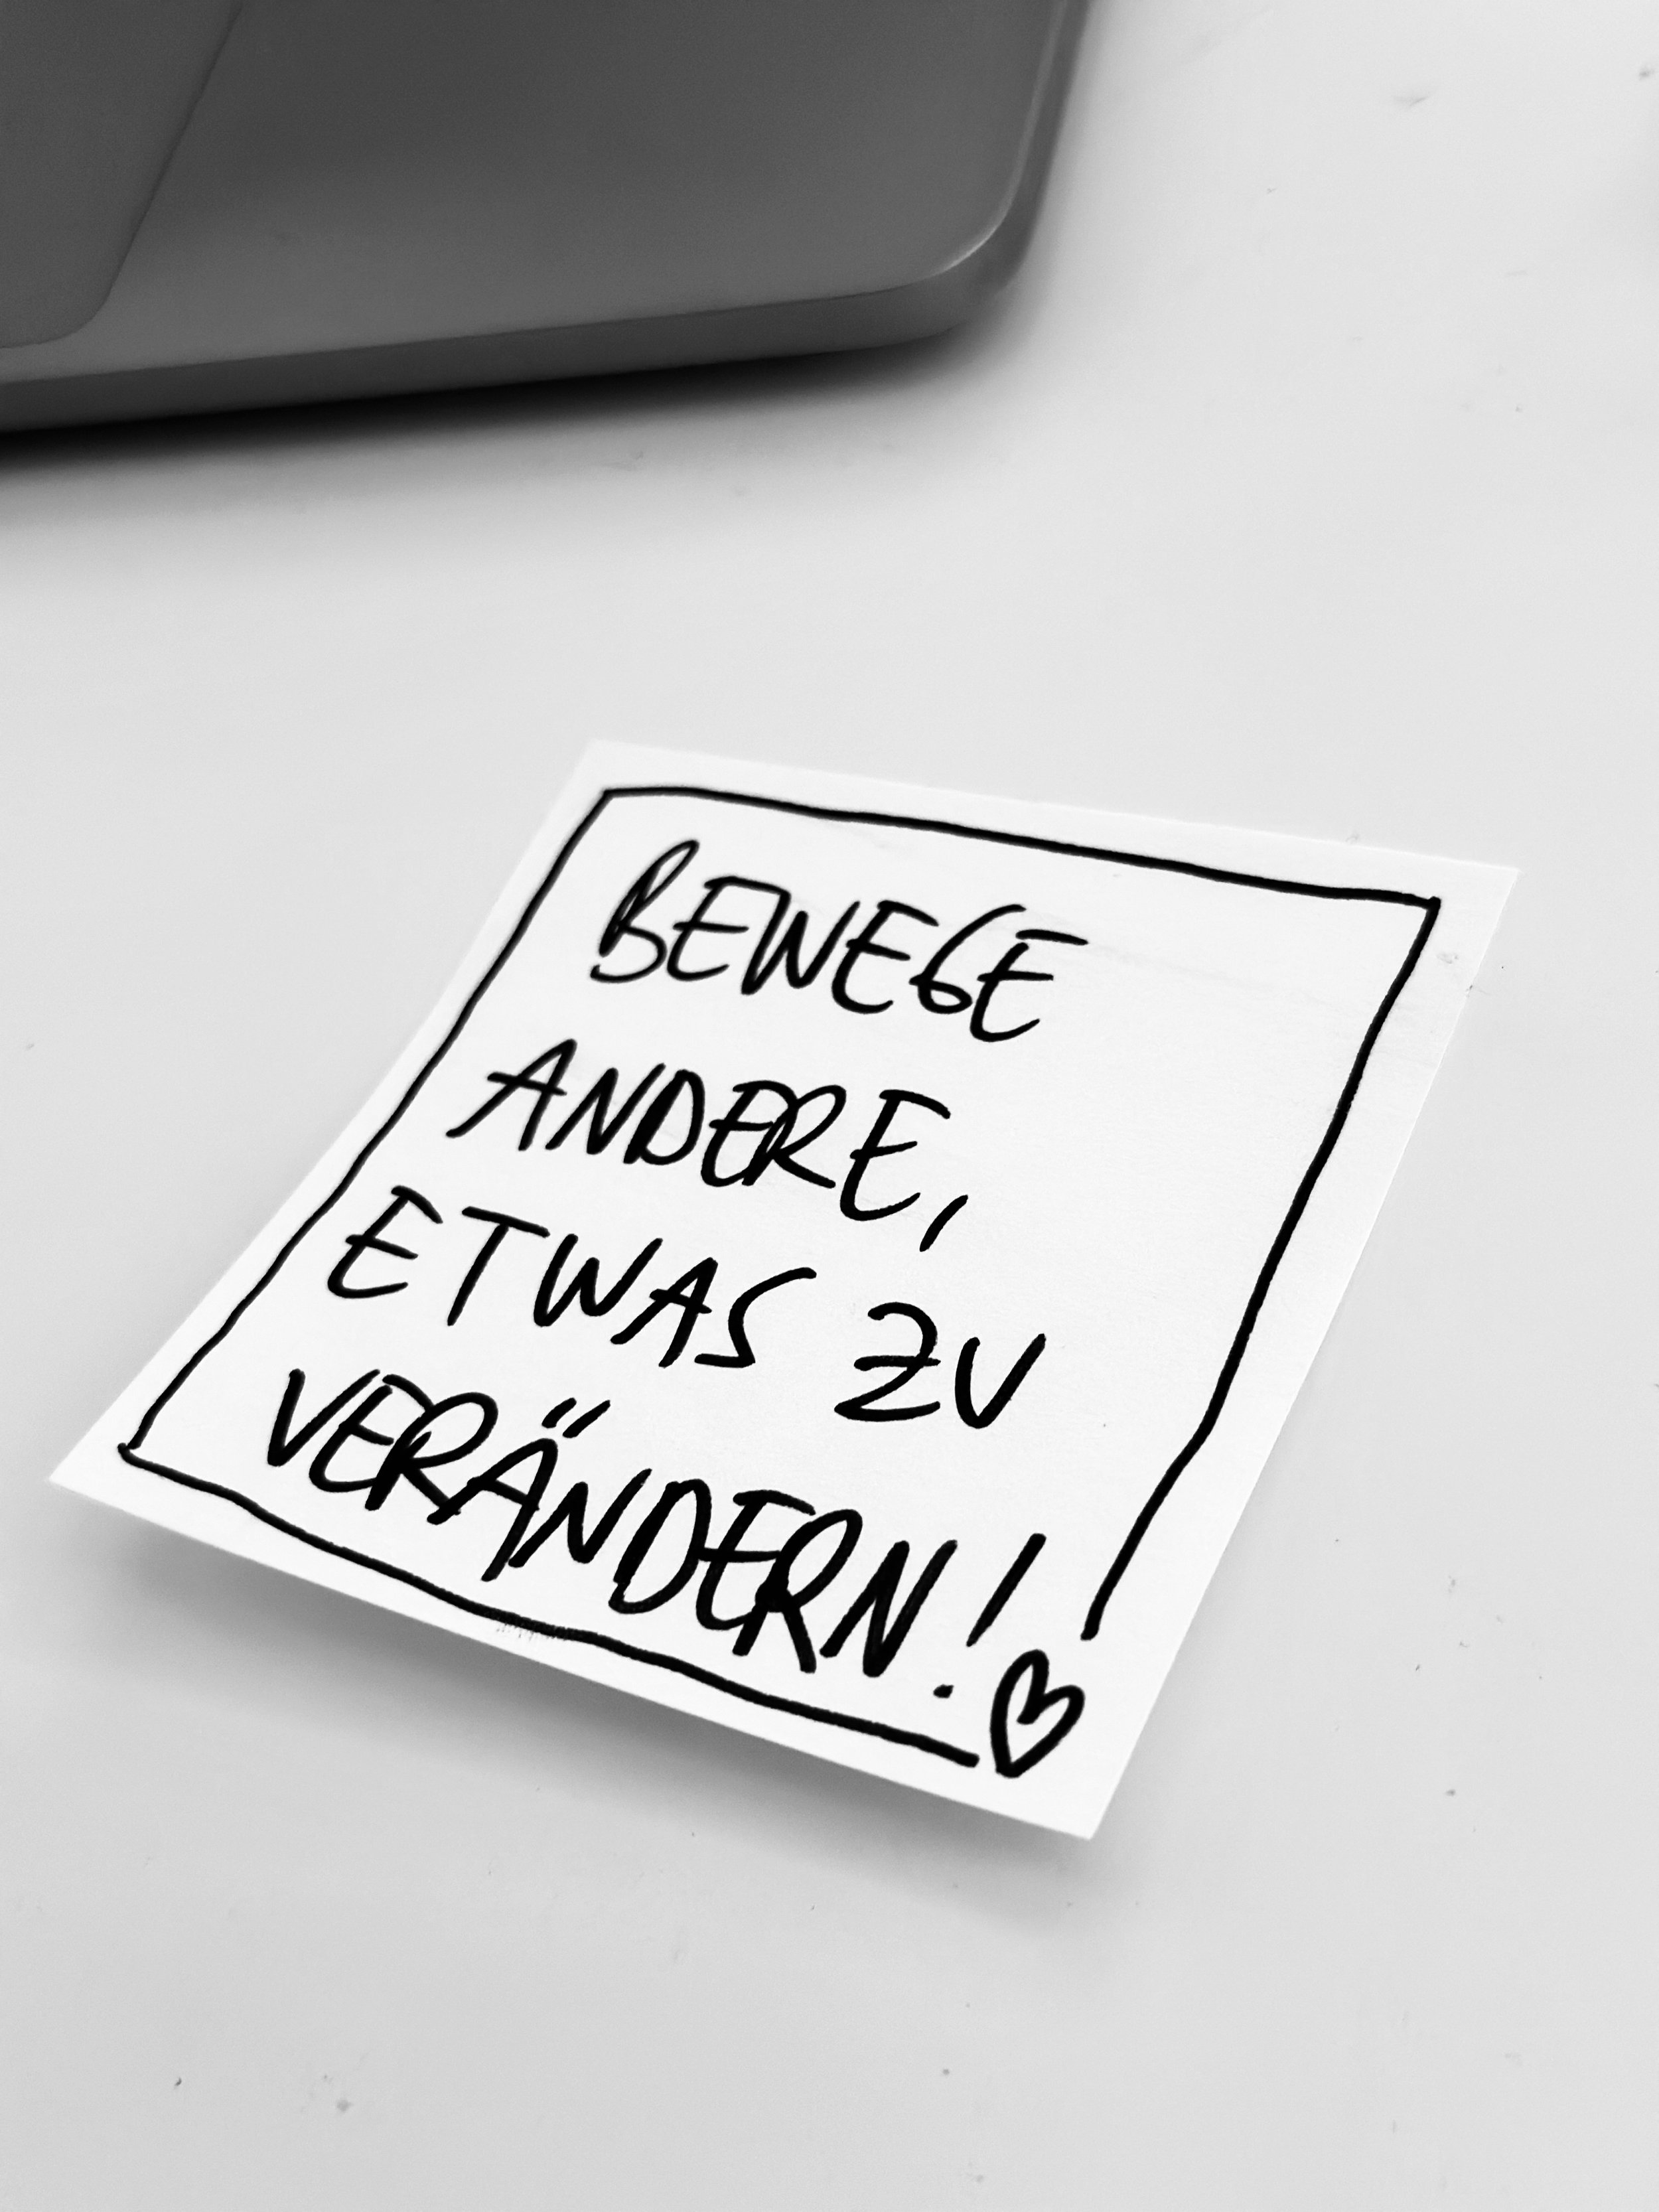 BEWEGE
ANDERE,
ETWAS ZU
VERÄNDERN!